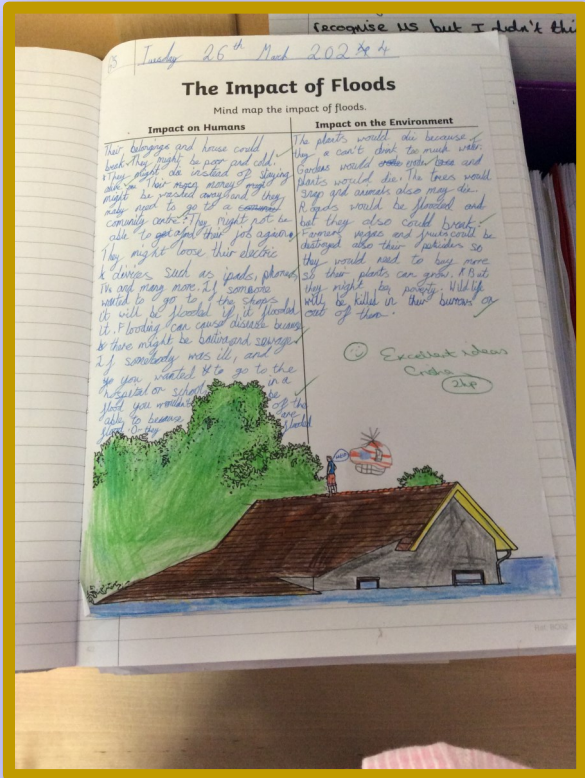 recognise us but I didn't thi
Tuesday 26th March 2024
The Impact of Floods
Mind map the impact of floods.
Impact on Humans
Their belongings and house could
break. They might be poor and cold.
They might die instead of staying
alive. Their money might
might be washed away and they
may apart to go to a
comunity centre. They might not be
able to get and their job again.
They might loose their electric
devices such as ipads, phones,
TVs and many more. If someone
wanted to go to the shops
it will be flooded if it flooded
it. Flooding can cause disease because
there might be bacteria and sewage
If somebody was ill, and
you wanted to go to the
hospital or school in a
flood you be
able to because of the
flood. they are
flooded
Impact on the Environment
The plants would die because
they can't drink too much water.
Gardens would and
plants would die. The trees would
snap and animals also may die.
Roads would be flooded and
but they also could break.
Farmers vegies and fruits could be
destroyed also their so
they would need to buy more
so their plants can grow. But
they might be poverty. Wildlife
will be killed in their burrows or
out of them.
Excellent ideas
2hp
HELP